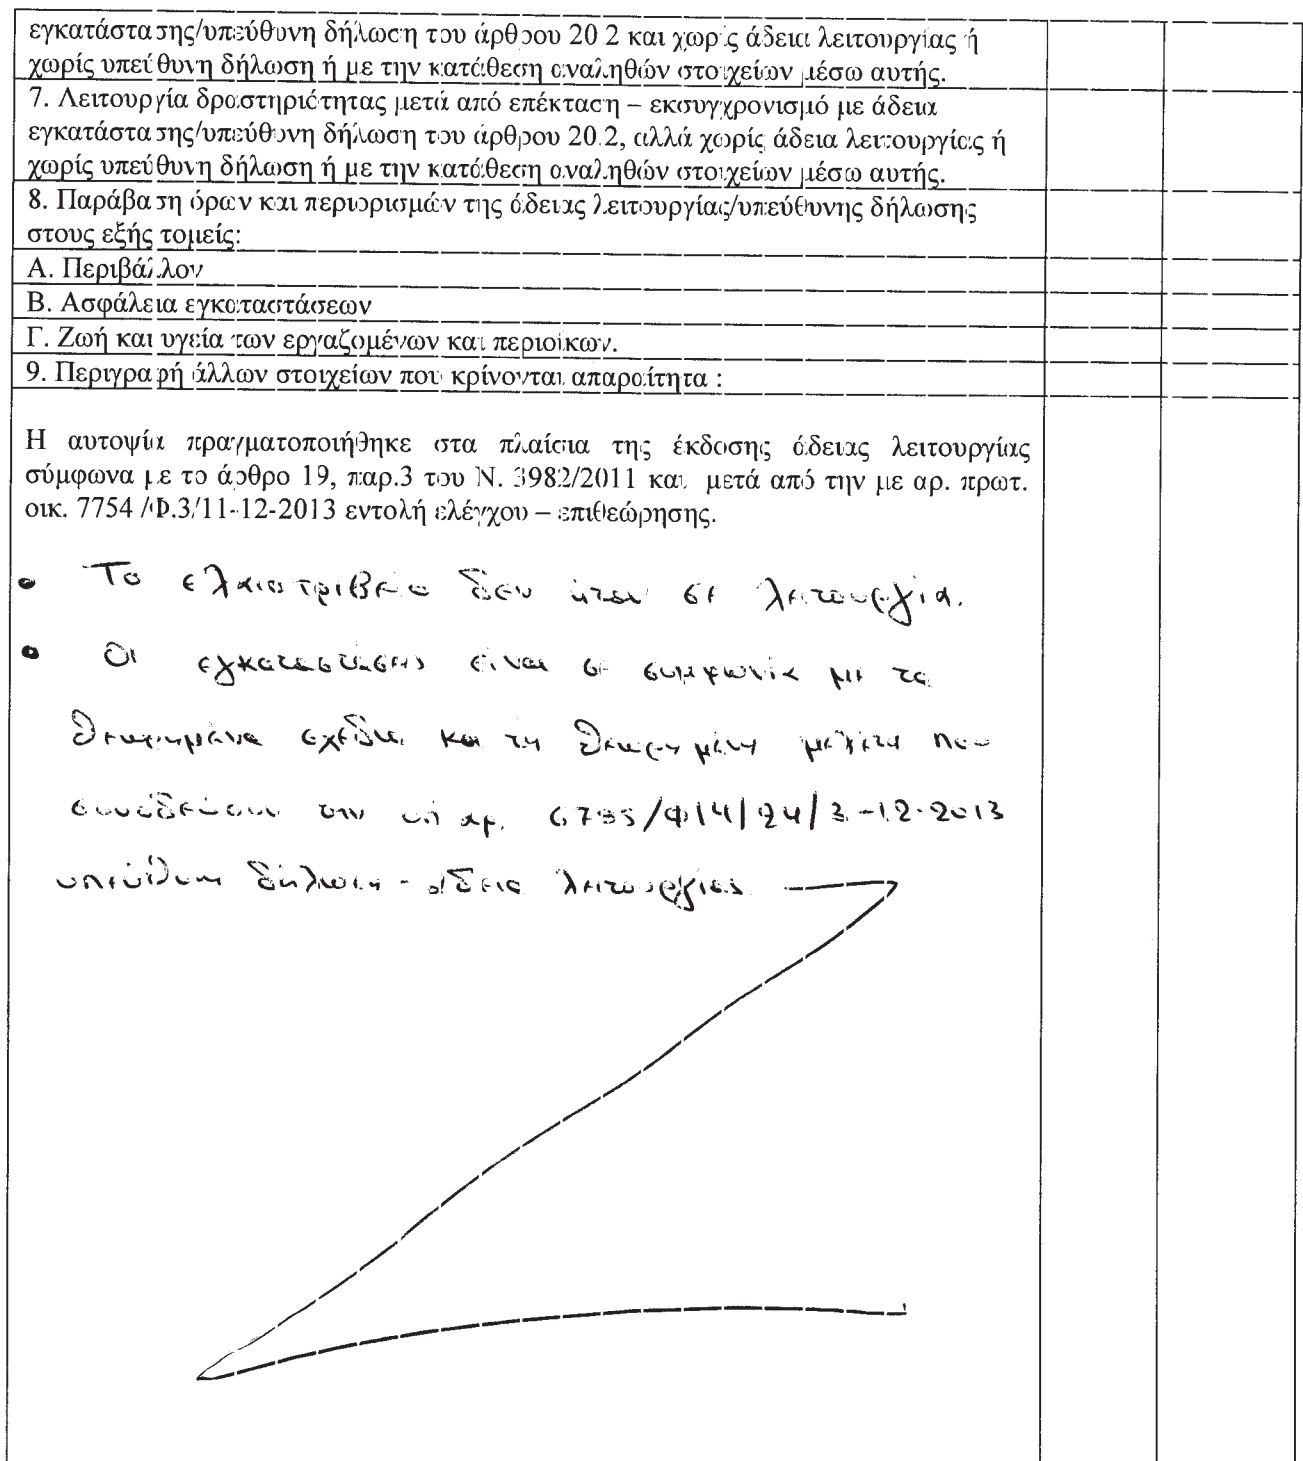 εγκατάστασης/υπεύθυνη δήλωση του άρθρου 20.2 και χωρίς άδεια λειτουργίας ή
χωρίς υπεύθυνη δήλωση ή με την κατάθεση αναληθών στοιχείων μέσω αυτής.
7. Λειτουργία δραστηριότητας μετά από επέκταση – εκσυγχρονισμό με άδεια
εγκατάστασης/υπεύθυνη δήλωση του άρθρου 20.2, αλλά χωρίς άδεια λειτουργίας ή
χωρίς υπεύθυνη δήλωση ή με την κατάθεση αναληθών στοιχείων μέσω αυτής.
8. Παράβαση όρων και περιορισμών της άδειας λειτουργίας/υπεύθυνης δήλωσης
στους εξής τομείς:
Α. Περιβάλλον
Β. Ασφάλεια εγκαταστάσεων
Γ. Ζωή και υγεία των εργαζομένων και περιοίκων.
9. Περιγραφή άλλων στοιχείων που κρίνονται απαραίτητα :
Η αυτοψία πραγματοποιήθηκε στα πλαίσια της έκδοσης άδειας λειτουργίας
σύμφωνα με το άρθρο 19, παρ.3 του Ν. 3982/2011 και μετά από την με αρ. πρωτ.
οικ. 7754 /Φ.3/11-12-2013 εντολή ελέγχου – επιθεώρησης.
• Το ελαιοτριβείο δεν ήταν σε λειτουργία.
• Οι εγκαταστάσεις είναι σε συμφωνία με τα
θεωρημένα σχέδια και τη θεωρημένη μελέτη που
συνοδεύουν την υπ αρ. /Φ14/24/3-12-2013
υπεύθυνη δήλωση - άδεια λειτουργίας